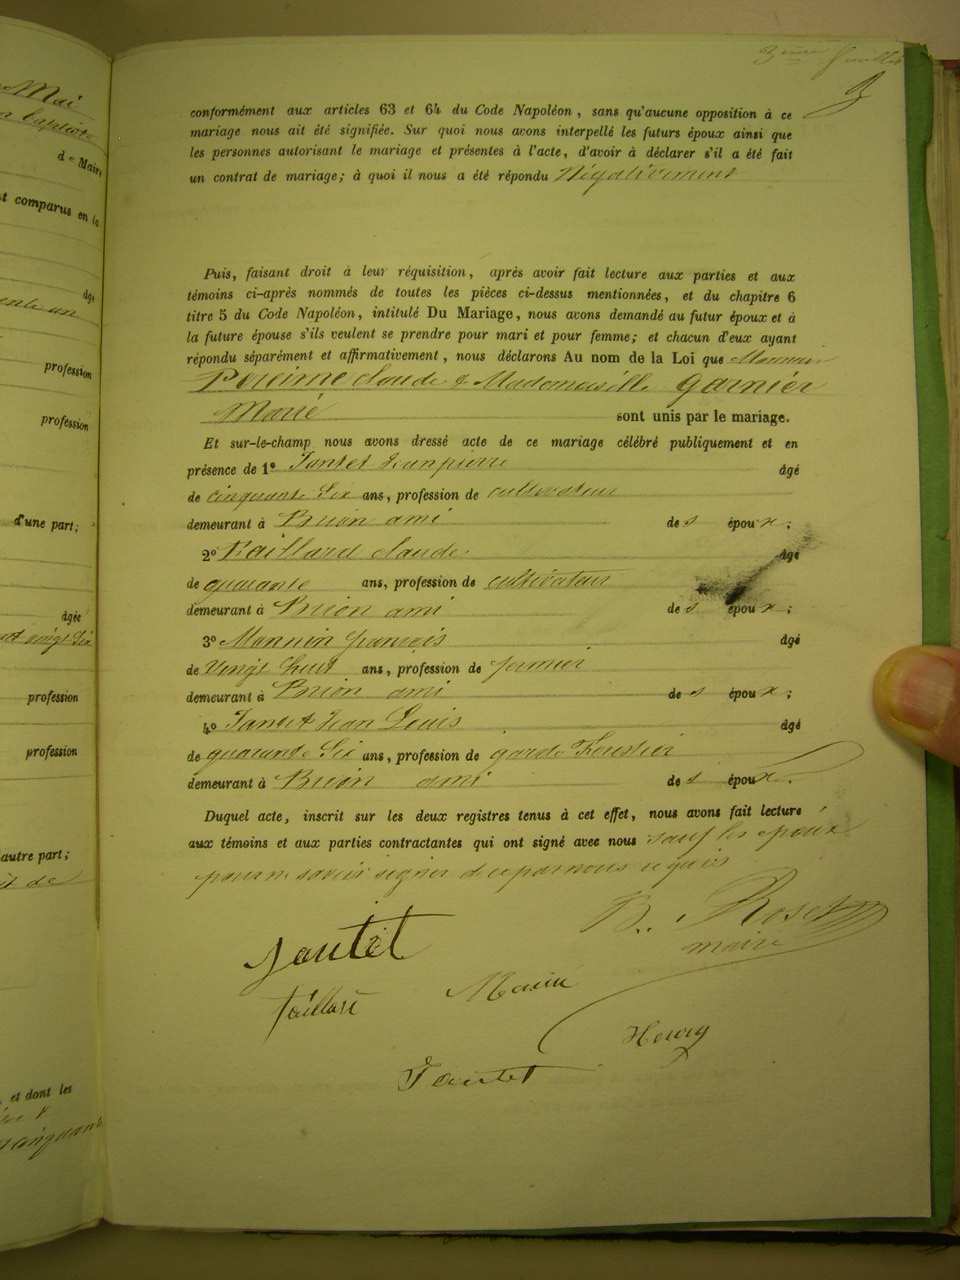 3eme feuillet
conformément aux articles 63 et 64 du Code Napoléon, sans qu'aucune opposition à ce
mariage nous ait été signifiée. Sur quoi nous avons interpellé les futurs époux ainsi que
les personnes autorisant le mariage et présentes à l'acte, d'avoir à déclarer s'il a été fait
un contrat de mariage; à quoi il nous a été répondu Négativement
Puis, faisant droit à leur réquisition, après avoir fait lecture aux parties et aux
témoins ci-après nommés de toutes les pièces ci-dessus mentionnées, et du chapitre 6
titre 5 du Code Napoléon, intitulé Du Mariage, nous avons demandé au futur époux et à
la future épouse s'ils veulent se prendre pour mari et pour femme; et chacun d'eux ayant
répondu séparément et affirmativement, nous déclarons Au nom de la Loi que
claude & Mademoiselle garnier
Marie sont unis par le mariage.
Et sur-le-champ nous avons dressé acte de ce mariage célébré publiquement et en
présence de 1º Jantet Jean pierre âgé
de cinquante Six ans, profession de cultivateur
demeurant à ami des époux;
2º claude âgé
de quarante ans, profession de cultivateur
demeurant à ami des époux;
3º françois âgé
de Vingt huit ans, profession de fermier
demeurant à ami des époux;
4º Jantet Jean Louis âgé
de quarante Six ans, profession de garde Forestier
demeurant à ami des époux.
Duquel acte, inscrit sur les deux registres tenus à cet effet, nous avons fait lecture
aux témoins et aux parties contractantes qui ont signé avec nous sauf les époux
pour ne savoir signer de ce par nous requis
B. Roset
maire
Jantet
Jantet
Mai
d'une part;
âgée
profession
profession
profession
profession
autre part;
, et dont les